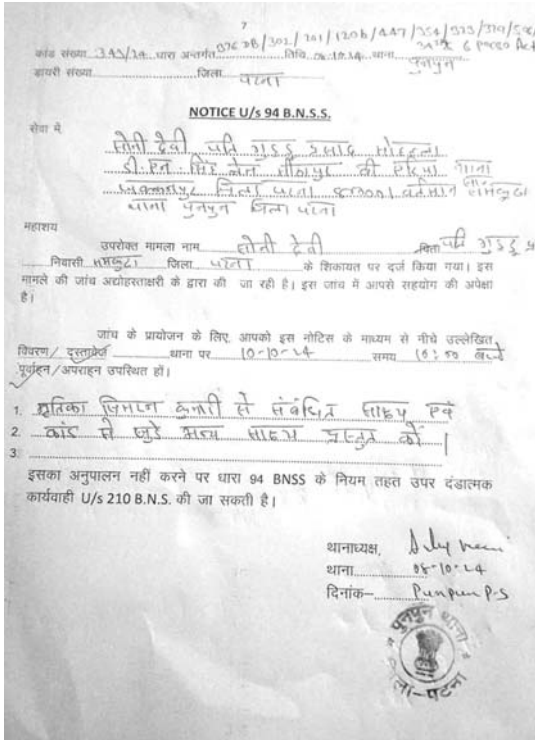 7
कांड संख्या 343/24 धारा अन्तर्गत 376 DB/302/201/120b/447/354/323/379/506/
तिथि 08-10-24 थाना पुनपुन 34 & 6 POCSO Act
डायरी संख्या जिला पटना
NOTICE U/s 94 B.N.S.S.
सेवा में,
सोनी देवी पति गुड्डु प्रसाद मोहल्ला
डी.एन. सिंह लेन मीठापुर थाना
जक्कनपुर जिला पटना 800001 वर्तमान
थाना पुनपुन जिला पटना
महाशय
उपरोक्त मामला नाम सोनी देवी पिता पति गुड्डु प्र
निवासी जिला पटना के शिकायत पर दर्ज किया गया। इस
मामले की जांच अद्योहस्ताक्षरी के द्वारा की जा रही है। इस जांच में आपसे सहयोग की अपेक्षा
है।
जांच के प्रायोजन के लिए, आपको इस नोटिस के माध्यम से नीचे उल्लेखित
विवरण/ दस्तावेज थाना पर 10-10-24 समय 10:00 बजे
पूर्वाहन/अपराहन उपस्थित हों।
1. मृतिका कुमारी से संबंधित साक्ष्य एवं
2. कांड से जुड़े अन्य साक्ष्य प्रस्तुत करें।
3.
इसका अनुपालन नहीं करने पर धारा 94 BNSS के नियम तहत उपर दंडात्मक
कार्यवाही U/s 210 B.N.S. की जा सकती है।
थानाध्यक्ष,
थाना 08-10-24
दिनांक– Punpun P-S
पुनपुन थाना
जिला-पटना